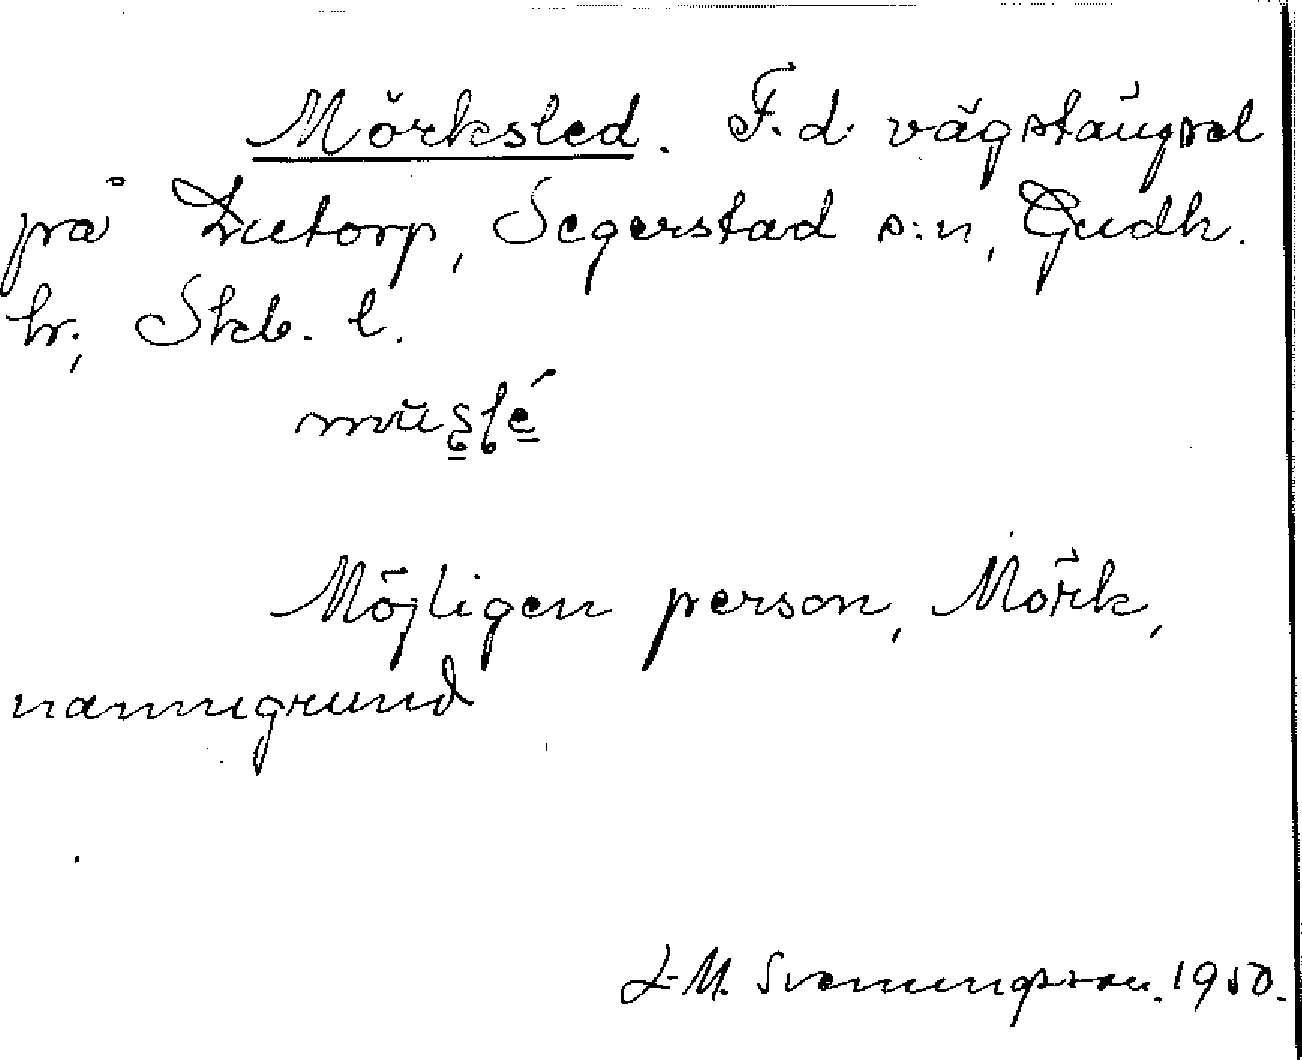 Mörksled. F.d vägstängsel
på Lutorp, Segerstad s:n, Gudh.
hr; Skb. l.
Möjligen person, Mörk,
namngrund
L-M. Svenungsson. 1950.